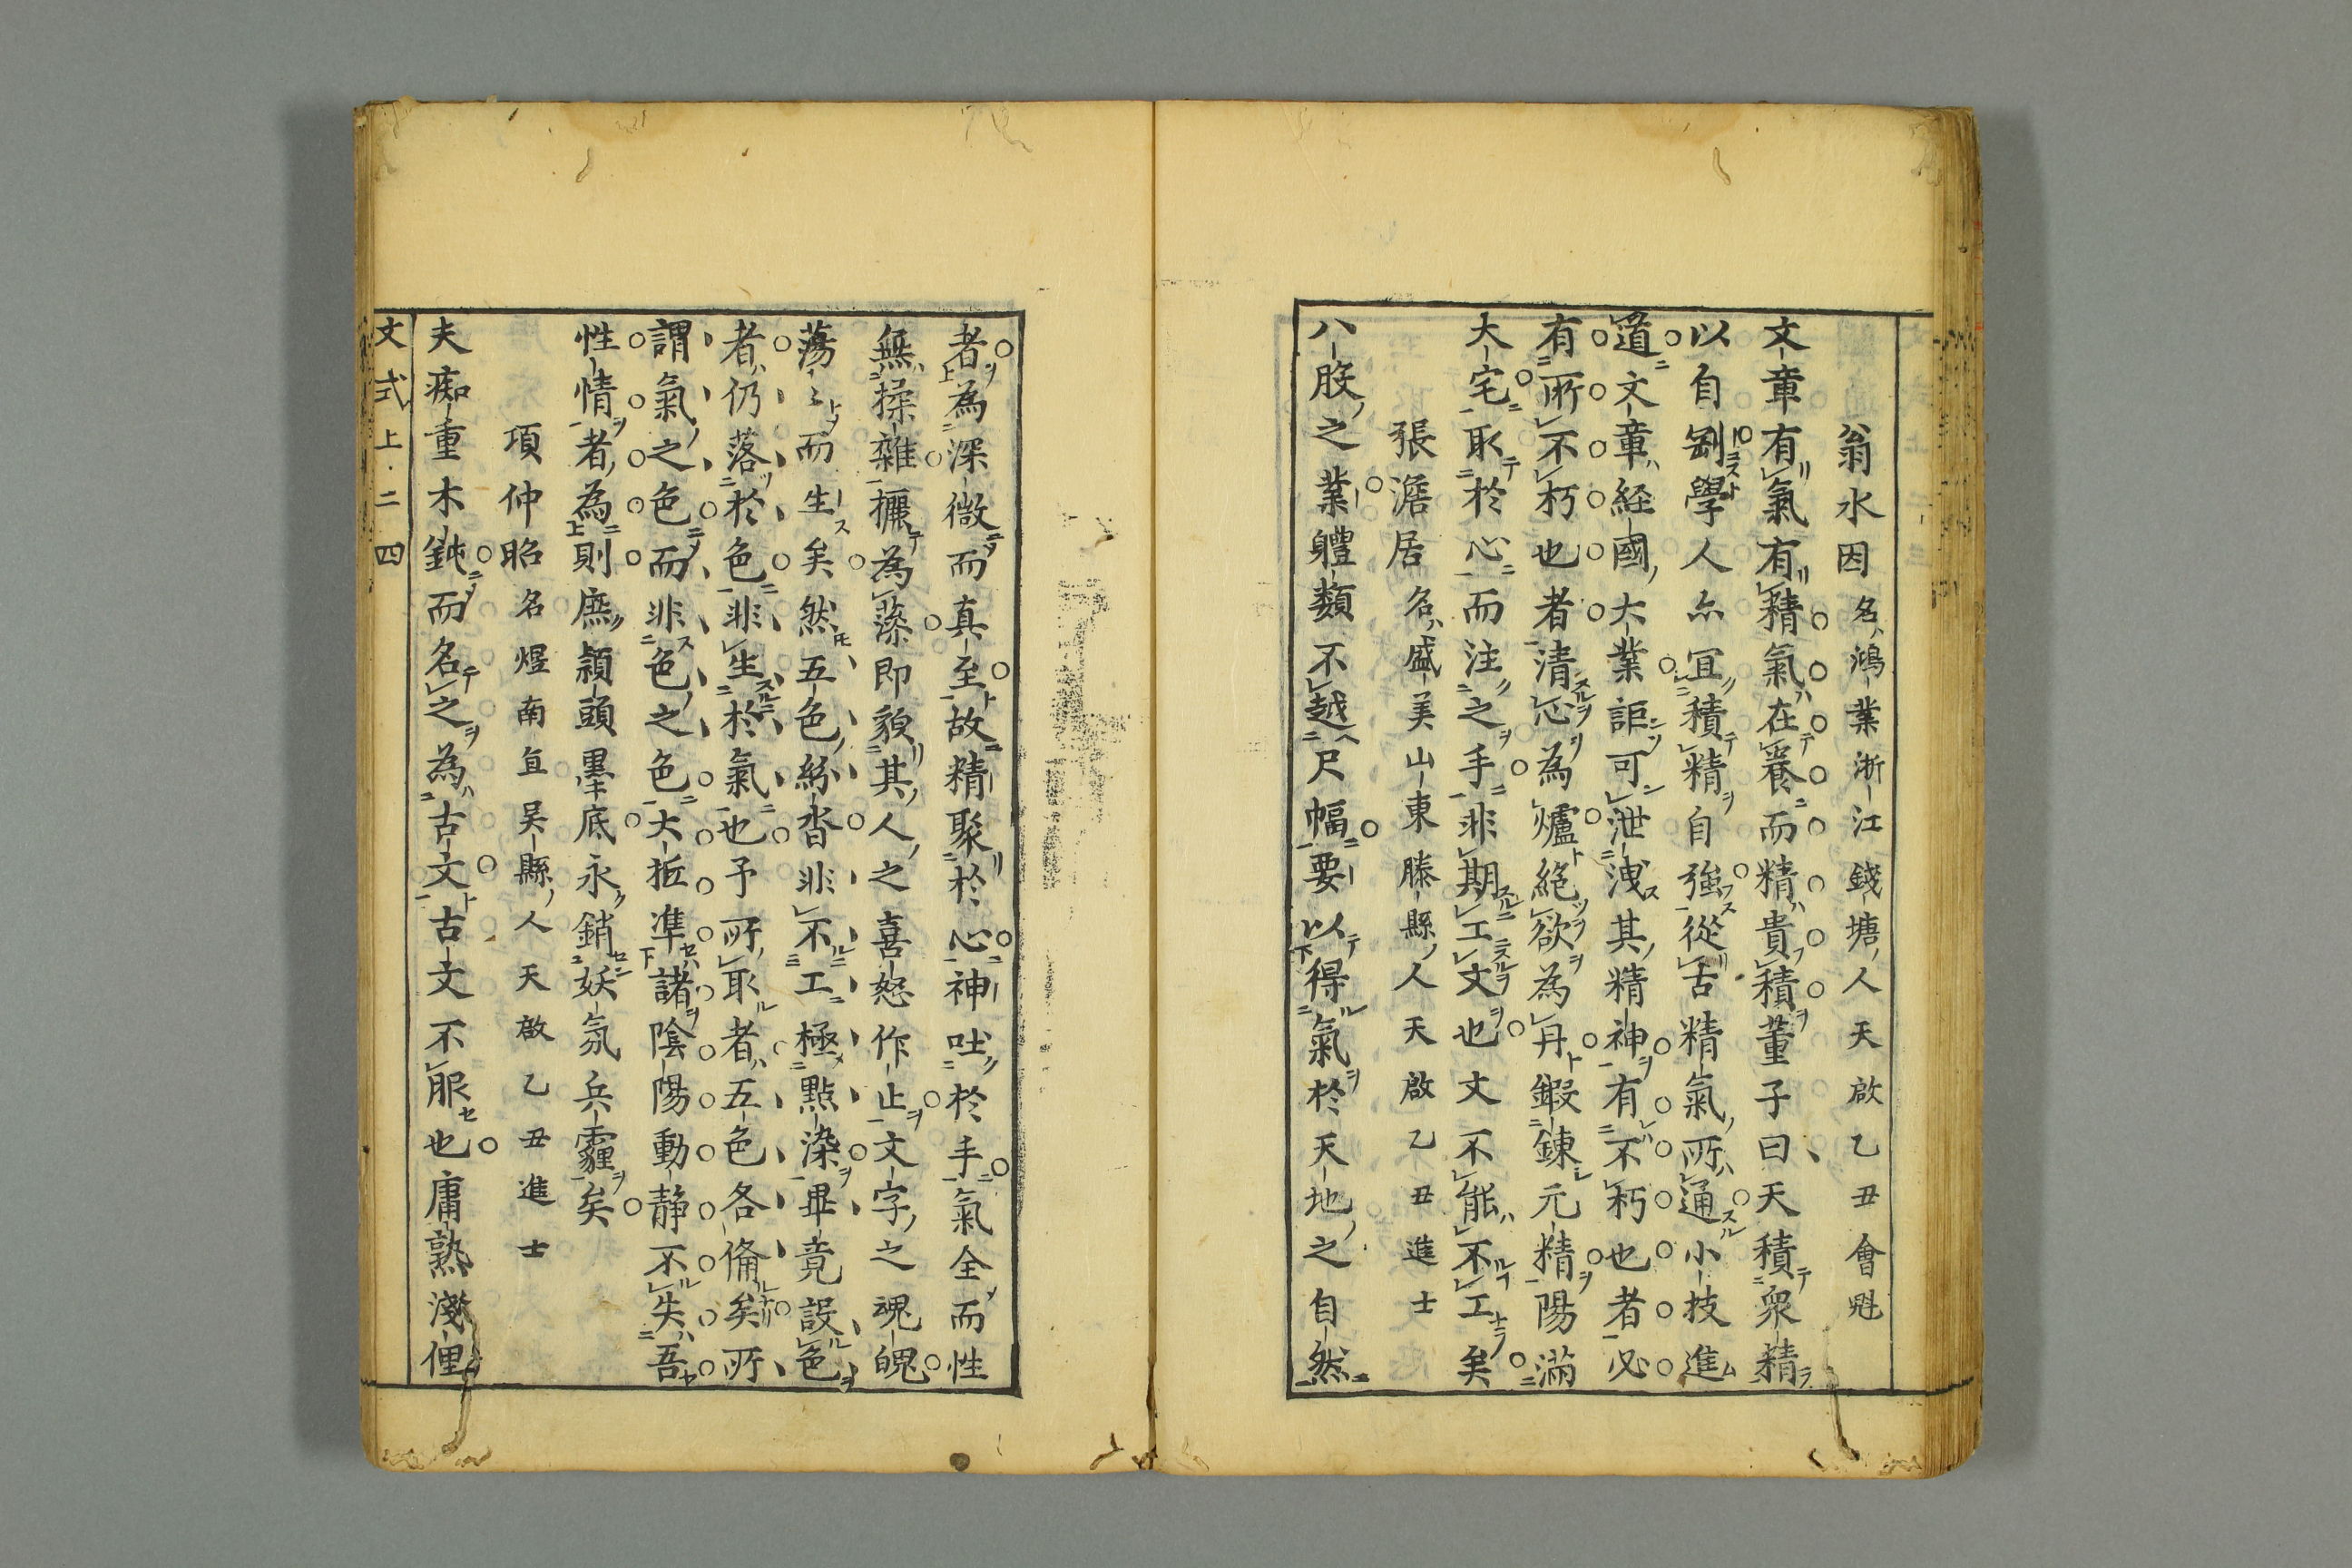 翁水因名鴻業浙江錢塘人天啟乙丑會魁
文章有氣有精氣在養而精貴積董子曰天積衆精
以自剛學人亦宜積精自強從古精氣所通小技進
道文章経國大業詎可泄洩其精神有不朽也者必
有所不朽也者清心為爐絕欲為丹鍜錬元精陽滿
大宅取於心而注之手非期工文也文不能不工矣
張澹居名盛美山東滕縣人天啟乙丑進士
八股之業體類不越尺幅要以得氣於天地之自然
者為深微而真至故精聚於心神吐於手氣全而性
無操雜攦為藻即貌其人之喜怒作止文字之魂魄
蕩〻而生矣然五色紛沓非不工極點染畢竟設色
者仍落於色非生於氣也予所取者五色各偹矣所
謂氣之色而非色之色大抵準諸陰陽動静不失吾
性情者為則庶頴頭墨底永銷妖氛兵霾矣
項仲昭名煜南直吴縣人天啟乙丑進士
夫痴重木鈍而名之為古文古文不服也庸熟淺俚
文式上・二四